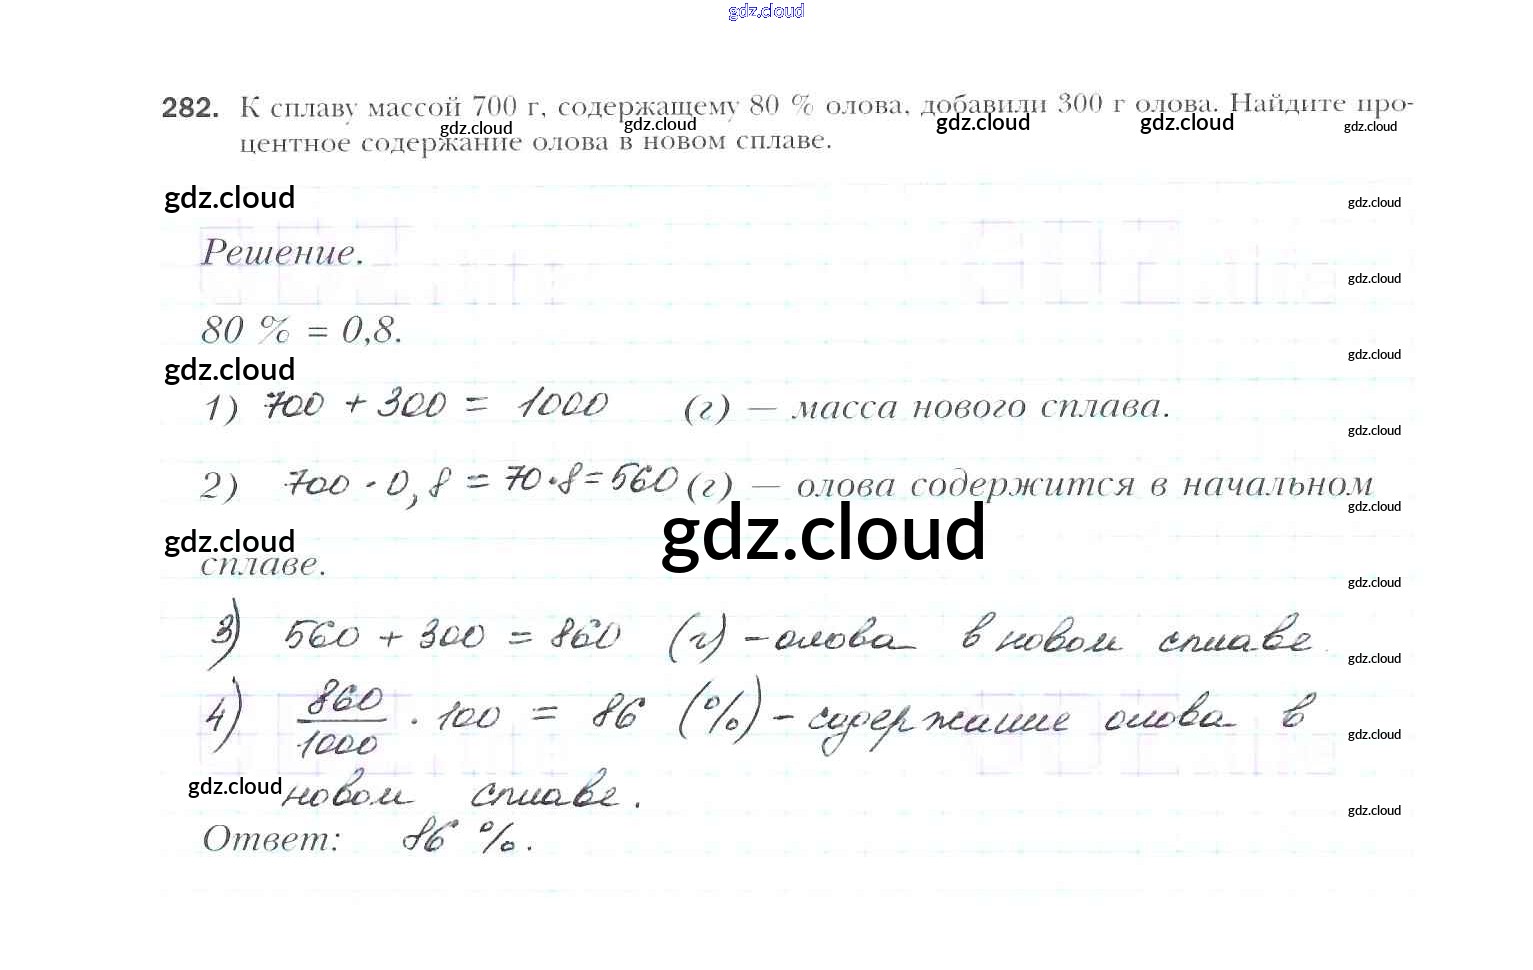 gdz.cloud
282. К сплаву массой 700 г, содержащему 80 % олова, добавили 300 г олова. Найдите про-
gdz.cloud gdz.cloud gdz.cloud gdz.cloud gdz.cloud
центное содержание олова в новом сплаве.
gdz.cloud gdz.cloud
Решение.
gdz.cloud
80 % = 0,8.
gdz.cloud gdz.cloud
1) 700 + 300 = 1000 (г) — масса нового сплава.
gdz.cloud
2) 700 · 0,8 = 70·8=560 (г) — олова содержится в начальном
gdz.cloud
gdz.cloud gdz.cloud
сплаве.
gdz.cloud
3) 560 + 300 = 860 (г) - олова в новом сплаве
gdz.cloud
4) 860/1000 · 100 = 86 (%) - содержание олова в
gdz.cloud
gdz.cloud новом сплаве.
gdz.cloud
Ответ: 86 %.